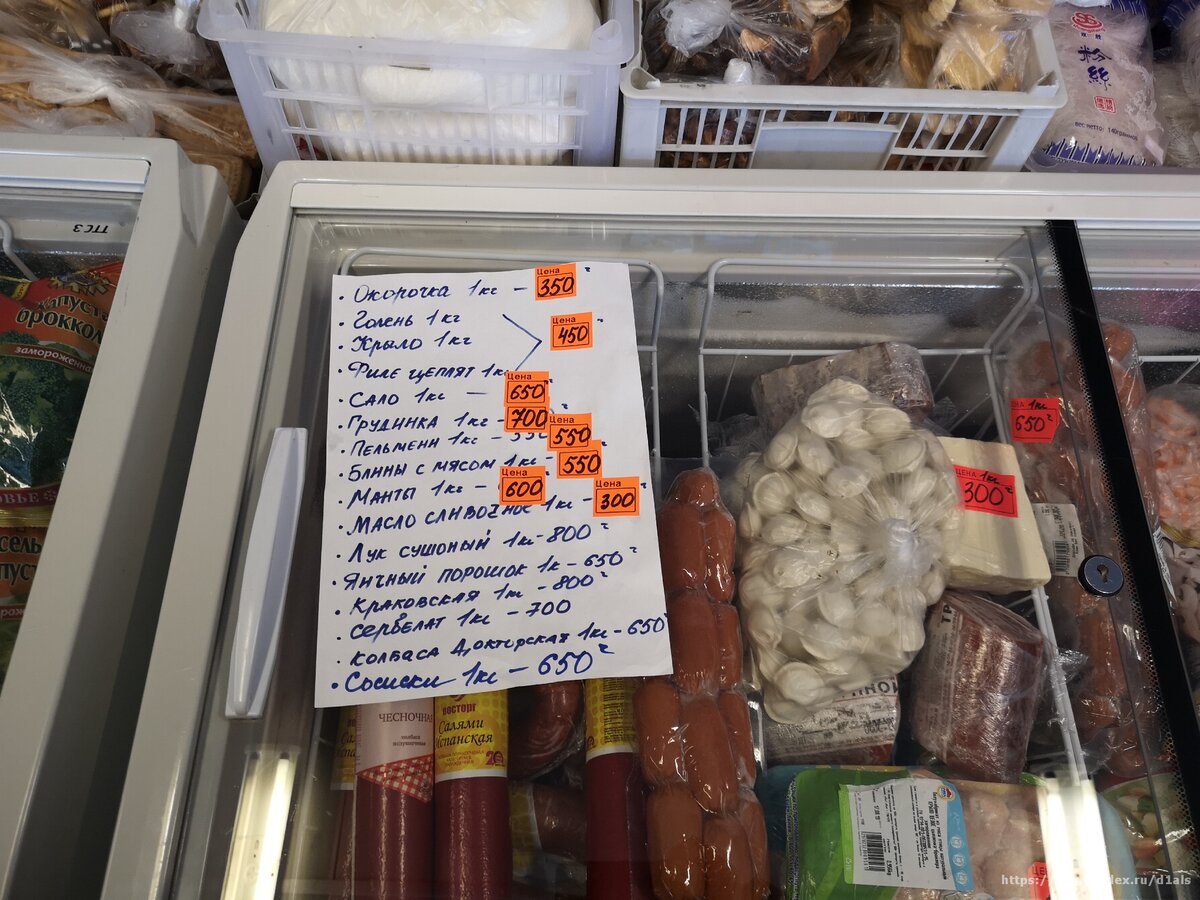 粉丝
вес нетто: 140граммов
ТТС 3
Капуста
брокколи
замороженная
· Окорочка 1кг – Цена 350 ²
· Голень 1кг
· Крыло 1кг Цена 450 ²
· Филе цеплят 1кг
· Сало 1кг — Цена 650
· Грудинка 1кг – Цена 700
· Пельмени 1кг – 550 Цена 550 ²
· Блины с мясом 1кг – Цена 550 ²
· Манты 1кг – Цена 600
· Масло сливочное 1кг – Цена 300 ²
· Лук сушоный 1кг – 800 ²
· Яичный порошок 1к – 650 ²
· Краковская 1кг – 800 ²
· Сербелат 1кг – 700
· Колбаса Докторская 1кг – 650
· Сосиски 1кг – 650 ²
1кг
650 ²
Цена 1кг
300 ²
ЧЕСНОЧНАЯ
восторг
Салями
Испанская